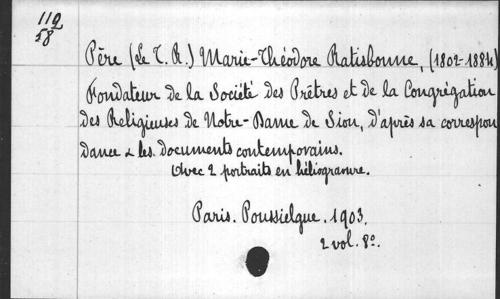 112
58
Père (Le T. R.) Marie-Théodore Ratisbonne, (1802-1884)
Fondateur de la Société des Prêtres et de la Congrégation
des Religieuses de Notre-Dame de Sion, d'après sa correspon
dance & les documents contemporains.
Avec 2 portraits en héliogravure.
Paris. Poussielgue. 1903.
2 vol. 8º.